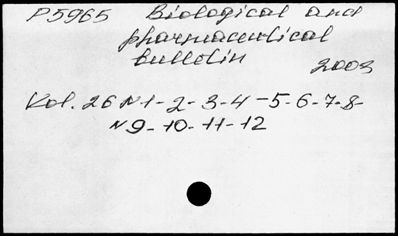 P5965 Biological and
pharmaceutical
bulletin
2003
Vol. 26 N 1-2-3-4-5-6-7-8-
N 9-10-11-12